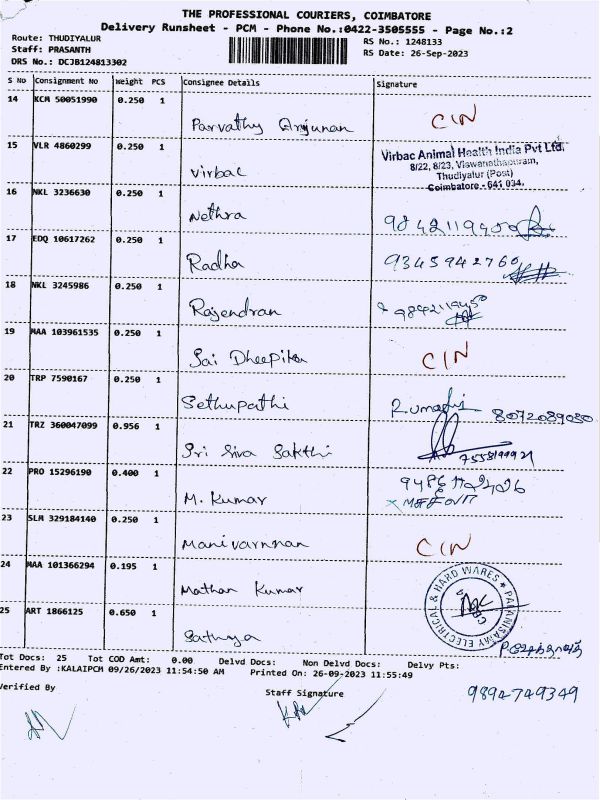 THE PROFESSIONAL COURIERS, COIMBATORE
Delivery Runsheet - PCM - Phone No.:0422-3505555 - Page No.:2
Route: THUDIYALUR
RS No.: 1248133
Staff: PRASANTH
RS Date: 26-Sep-2023
DRS No.: DCJB124813302
S No Consignment No Weight PCS Consignee Details Signature
14 KCM 50051990 0.250 1
Parvathy Arjunan CIN
15 VLR 4860299 0.250 1
Virbac Animal Health India Pvt Ltd,
8/22, 8/23, Viswanathapuram,
Thudiyalur (Post)
Virbac
Coimbatore - 641 034.
16 NKL 3236630 0.250 1
Nethra 9842119450
17 EDQ 10617262 0.250 1
Radha 9345942760
18 NKL 3245986 0.250 1
Rajendran 9842119450
19 MAA 103961535 0.250 1
Sai Dheepika CIN
20 TRP 7590167 0.250 1
Sethupathi 8072089080
21 TRZ 360047099 0.956 1
Sri Siva Sakthi
22 PRO 15296190 0.400 1
M. Kumar
23 SLM 329184140 0.250 1
Manivarnnan CIN
24 MAA 101366294 0.195 1
Mathan Kumar
PALANISAMY ELECTRICAL & HARD WARES
CBE
25 ART 1866125 0.650 1
Sathya
Tot Docs: 25 Tot COD Amt: 0.00 Delvd Docs: Non Delvd Docs: Delvy Pts:
Entered By :KALAIPCM 09/26/2023 11:54:50 AM Printed On: 26-09-2023 11:55:49
Verified By Staff Signature 9894749349